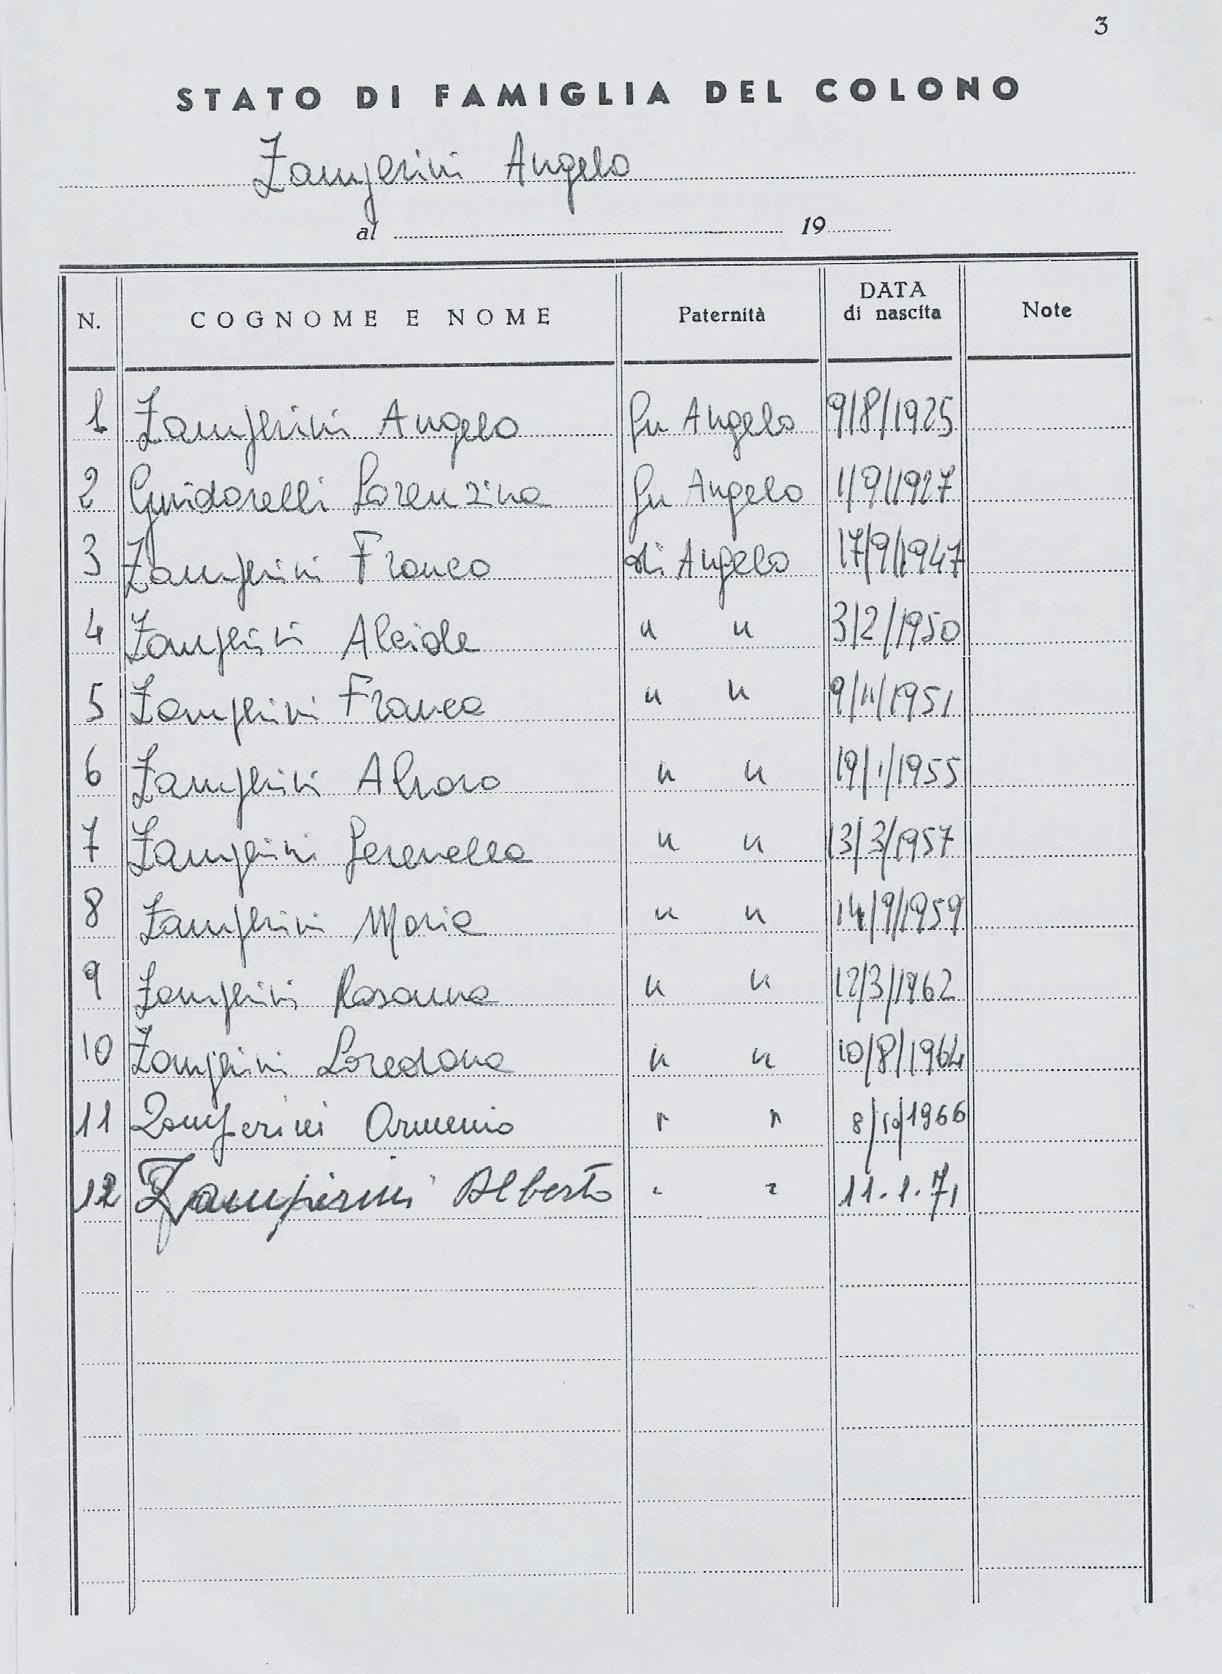 3
STATO DI FAMIGLIA DEL COLONO
Zamperini Angelo
al 19
N. COGNOME E NOME Paternità DATA di nascita Note
1 Zamperini Angelo fu Angelo 9/8/1925
2 Guidarelli Lorenzina fu Angelo 1/9/1927
3 Zamperini Franco di Angelo 17/9/1947
4 Zamperini Alcide " " 3/2/1950
5 Zamperini Franca " " 9/11/1951
6 Zamperini Alvaro " " 19/1/1955
7 Zamperini Serenella " " 13/3/1957
8 Zamperini Maria " " 14/9/1959
9 Zamperini Rosanna " " 12/3/1962
10 Zamperini Loredana " " 10/8/1964
11 Zamperini Armenio " " 8/10/1966
12 Zamperini Alberto " " 11.1.71